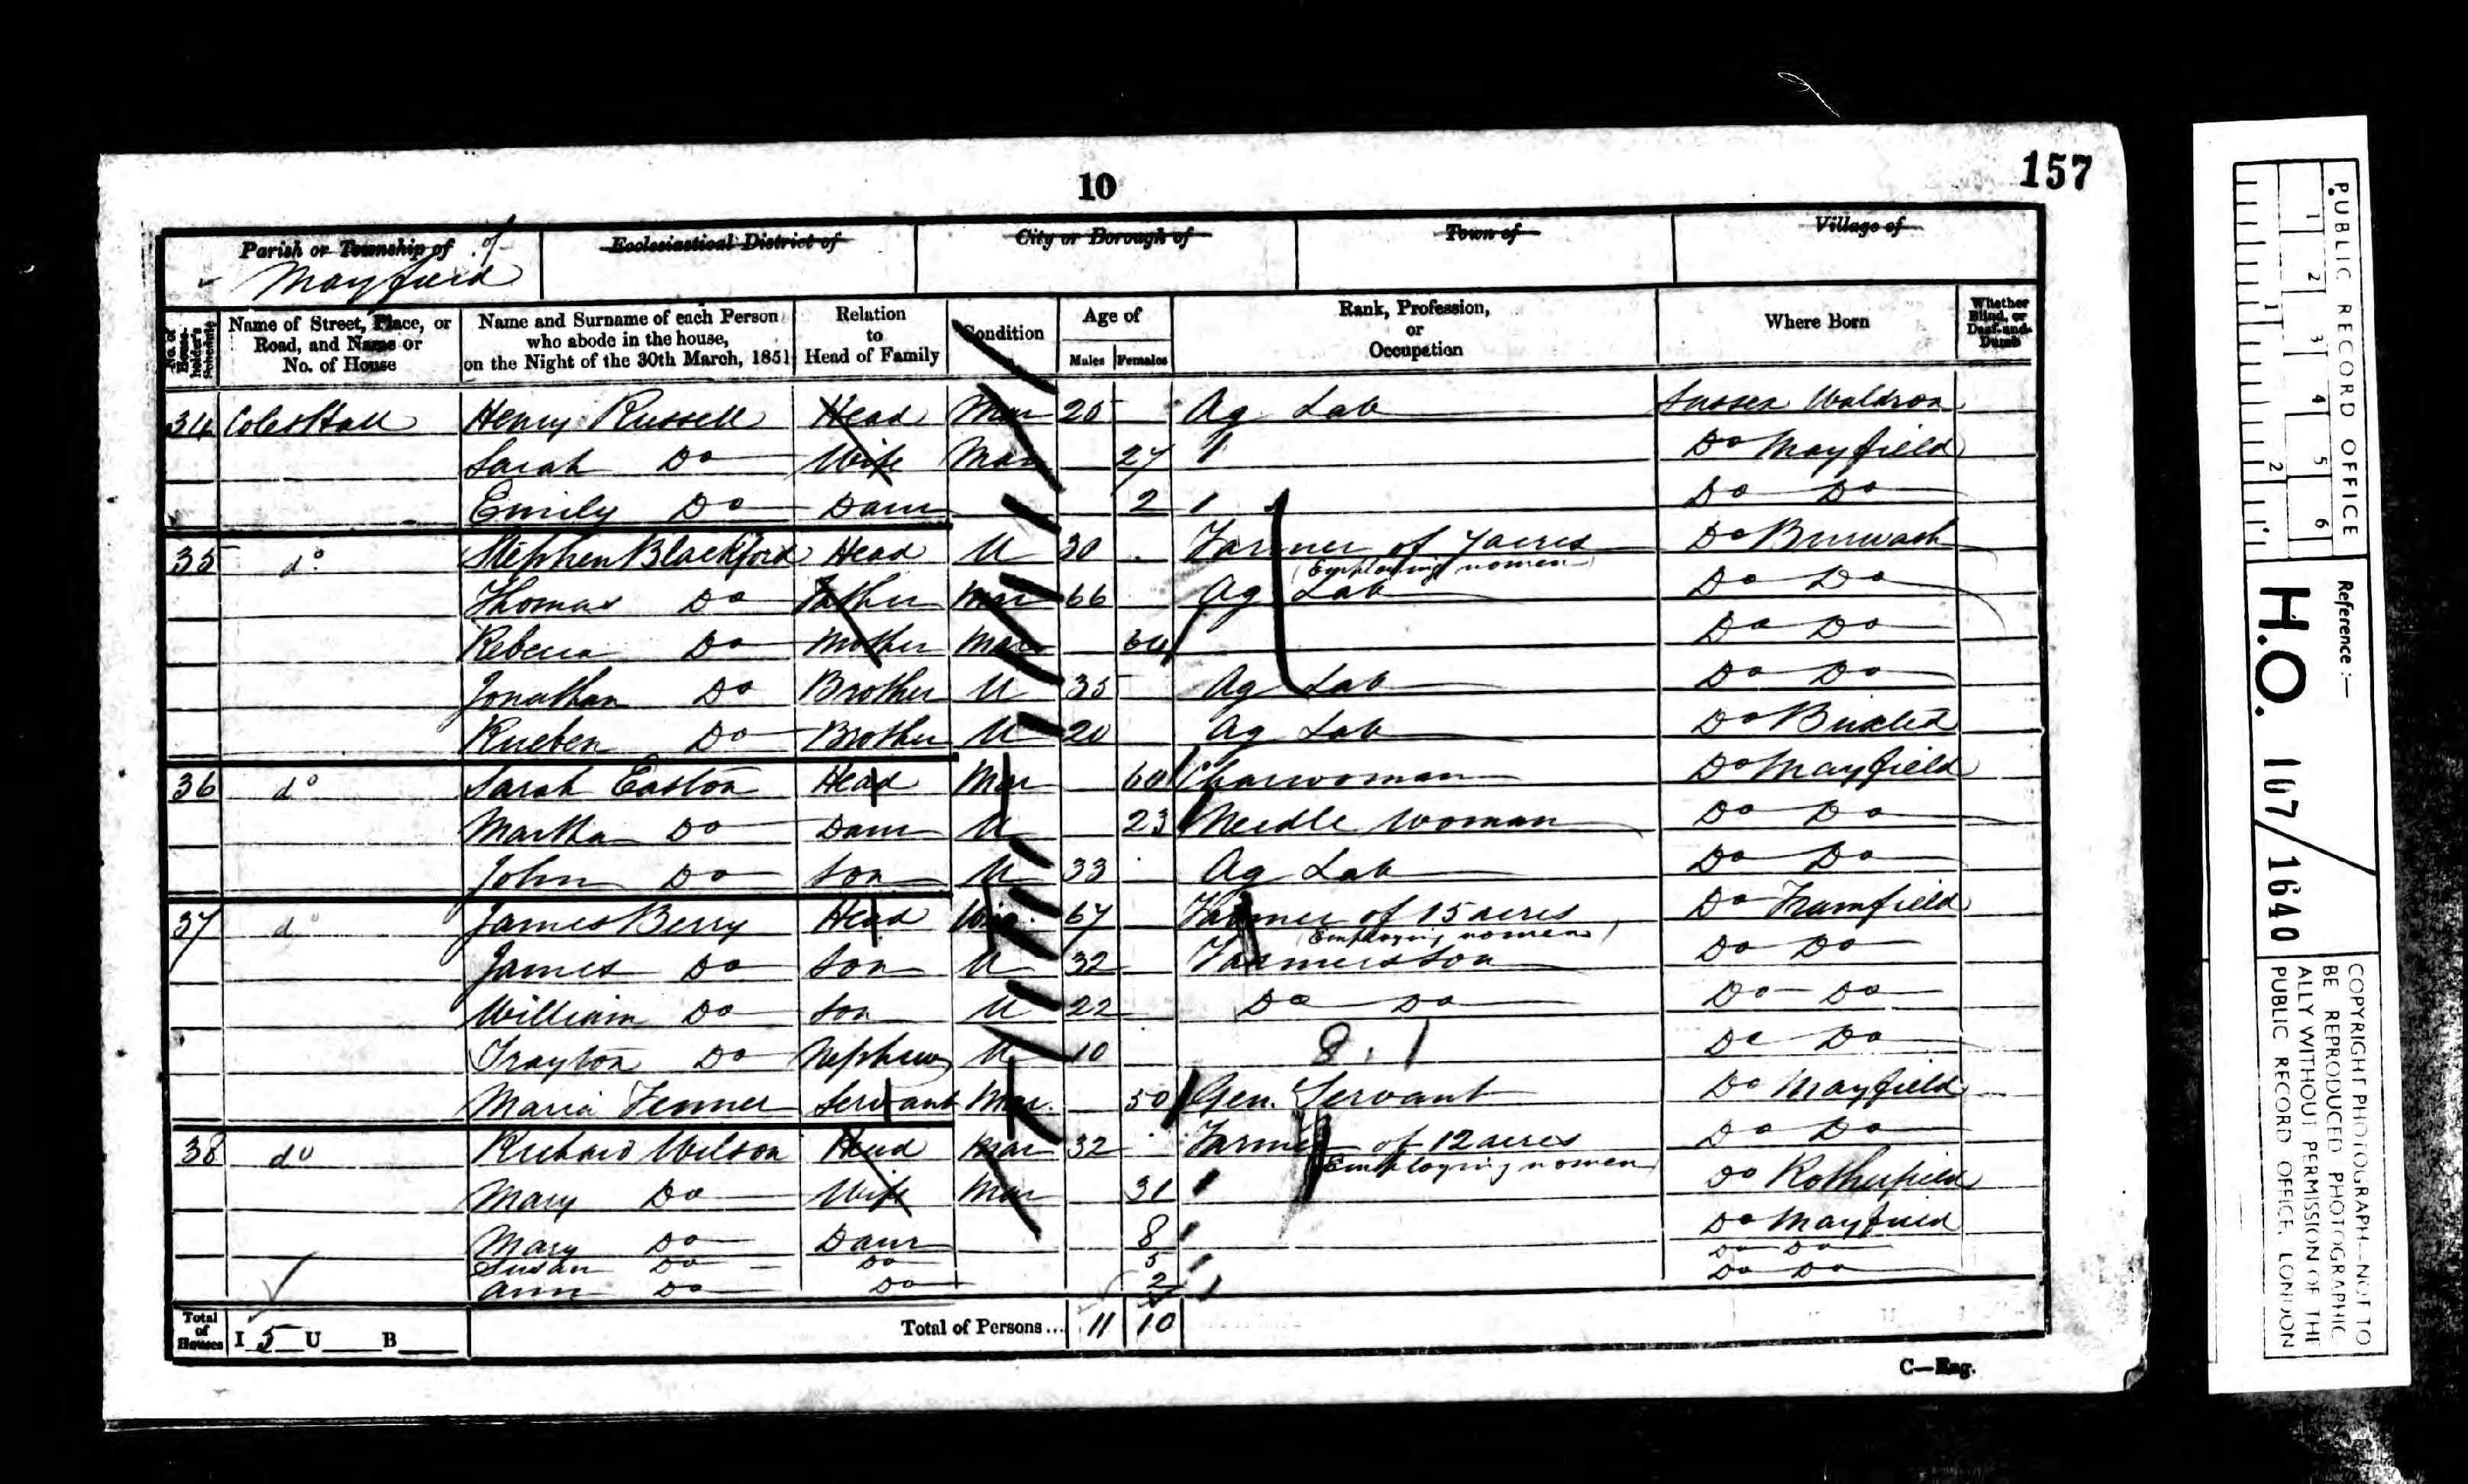 157
10
Parish or Township of of
Mayfield
Ecclesiastical District of
City or Borough of
Town of
Village of
No. of House-holder's Schedule
Name of Street, Place, or Road, and Name or No. of House
Name and Surname of each Person who abode in the house, on the Night of the 30th March, 1851
Relation to Head of Family
Condition
Age of
Males Females
Rank, Profession, or Occupation
Where Born
Whether Blind, or Deaf-and-Dumb
34 Coles Hall Henry Russell Head Mar 25 Ag Lab Sussex Waldron
Sarah Do Wife Mar 27 Do Mayfield
Emily Do Daur 2 Do Do
35 do Stephen Blackford Head U 30 Farmer of 7 acres Do Burwash
(Employing no men)
Thomas Do Father Mar 66 Ag Lab Do Do
Rebecca Do Mother Mar 64 Do Do
Jonathan Do Brother U 35 Ag Lab Do Do
Rueben Do Brother U 20 Ag Lab Do Buxted
36 do Sarah Easton Head Mar 60 Charwoman Do Mayfield
Martha Do Daur U 23 Needle Woman Do Do
John Do Son U 33 Ag Lab Do Do
37 do James Berry Head 67 Farmer of 15 acres Do Framfield
(Employing no men)
James Do Son U 32 Farmers Son Do Do
William Do Son U 22 Do Do Do Do
Trayton Do Nephew U 10 Do Do
Maria Fenner Servant Mar. 50 Gen. Servant Do Mayfield
38 do Richard Wilson Head Mar 32 Farmer of 12 acres Do Do
Employing no men
Mary Do Wife Mar 31 Do Rotherfield
Mary Do Daur 8 Do Mayfield
Susan Do Do 5 Do Do
Ann Do Do 2 Do Do
Total of Houses I 5 U B Total of Persons... 11 10
C—Eng.
PUBLIC RECORD OFFICE
1 2 3 4 5 6
1 2
Reference :—
H.O. 107/1640
COPYRIGHT PHOTOGRAPH—NOT TO
BE REPRODUCED PHOTOGRAPHIC
ALLY WITHOUT PERMISSION OF THE
PUBLIC RECORD OFFICE, LONDON